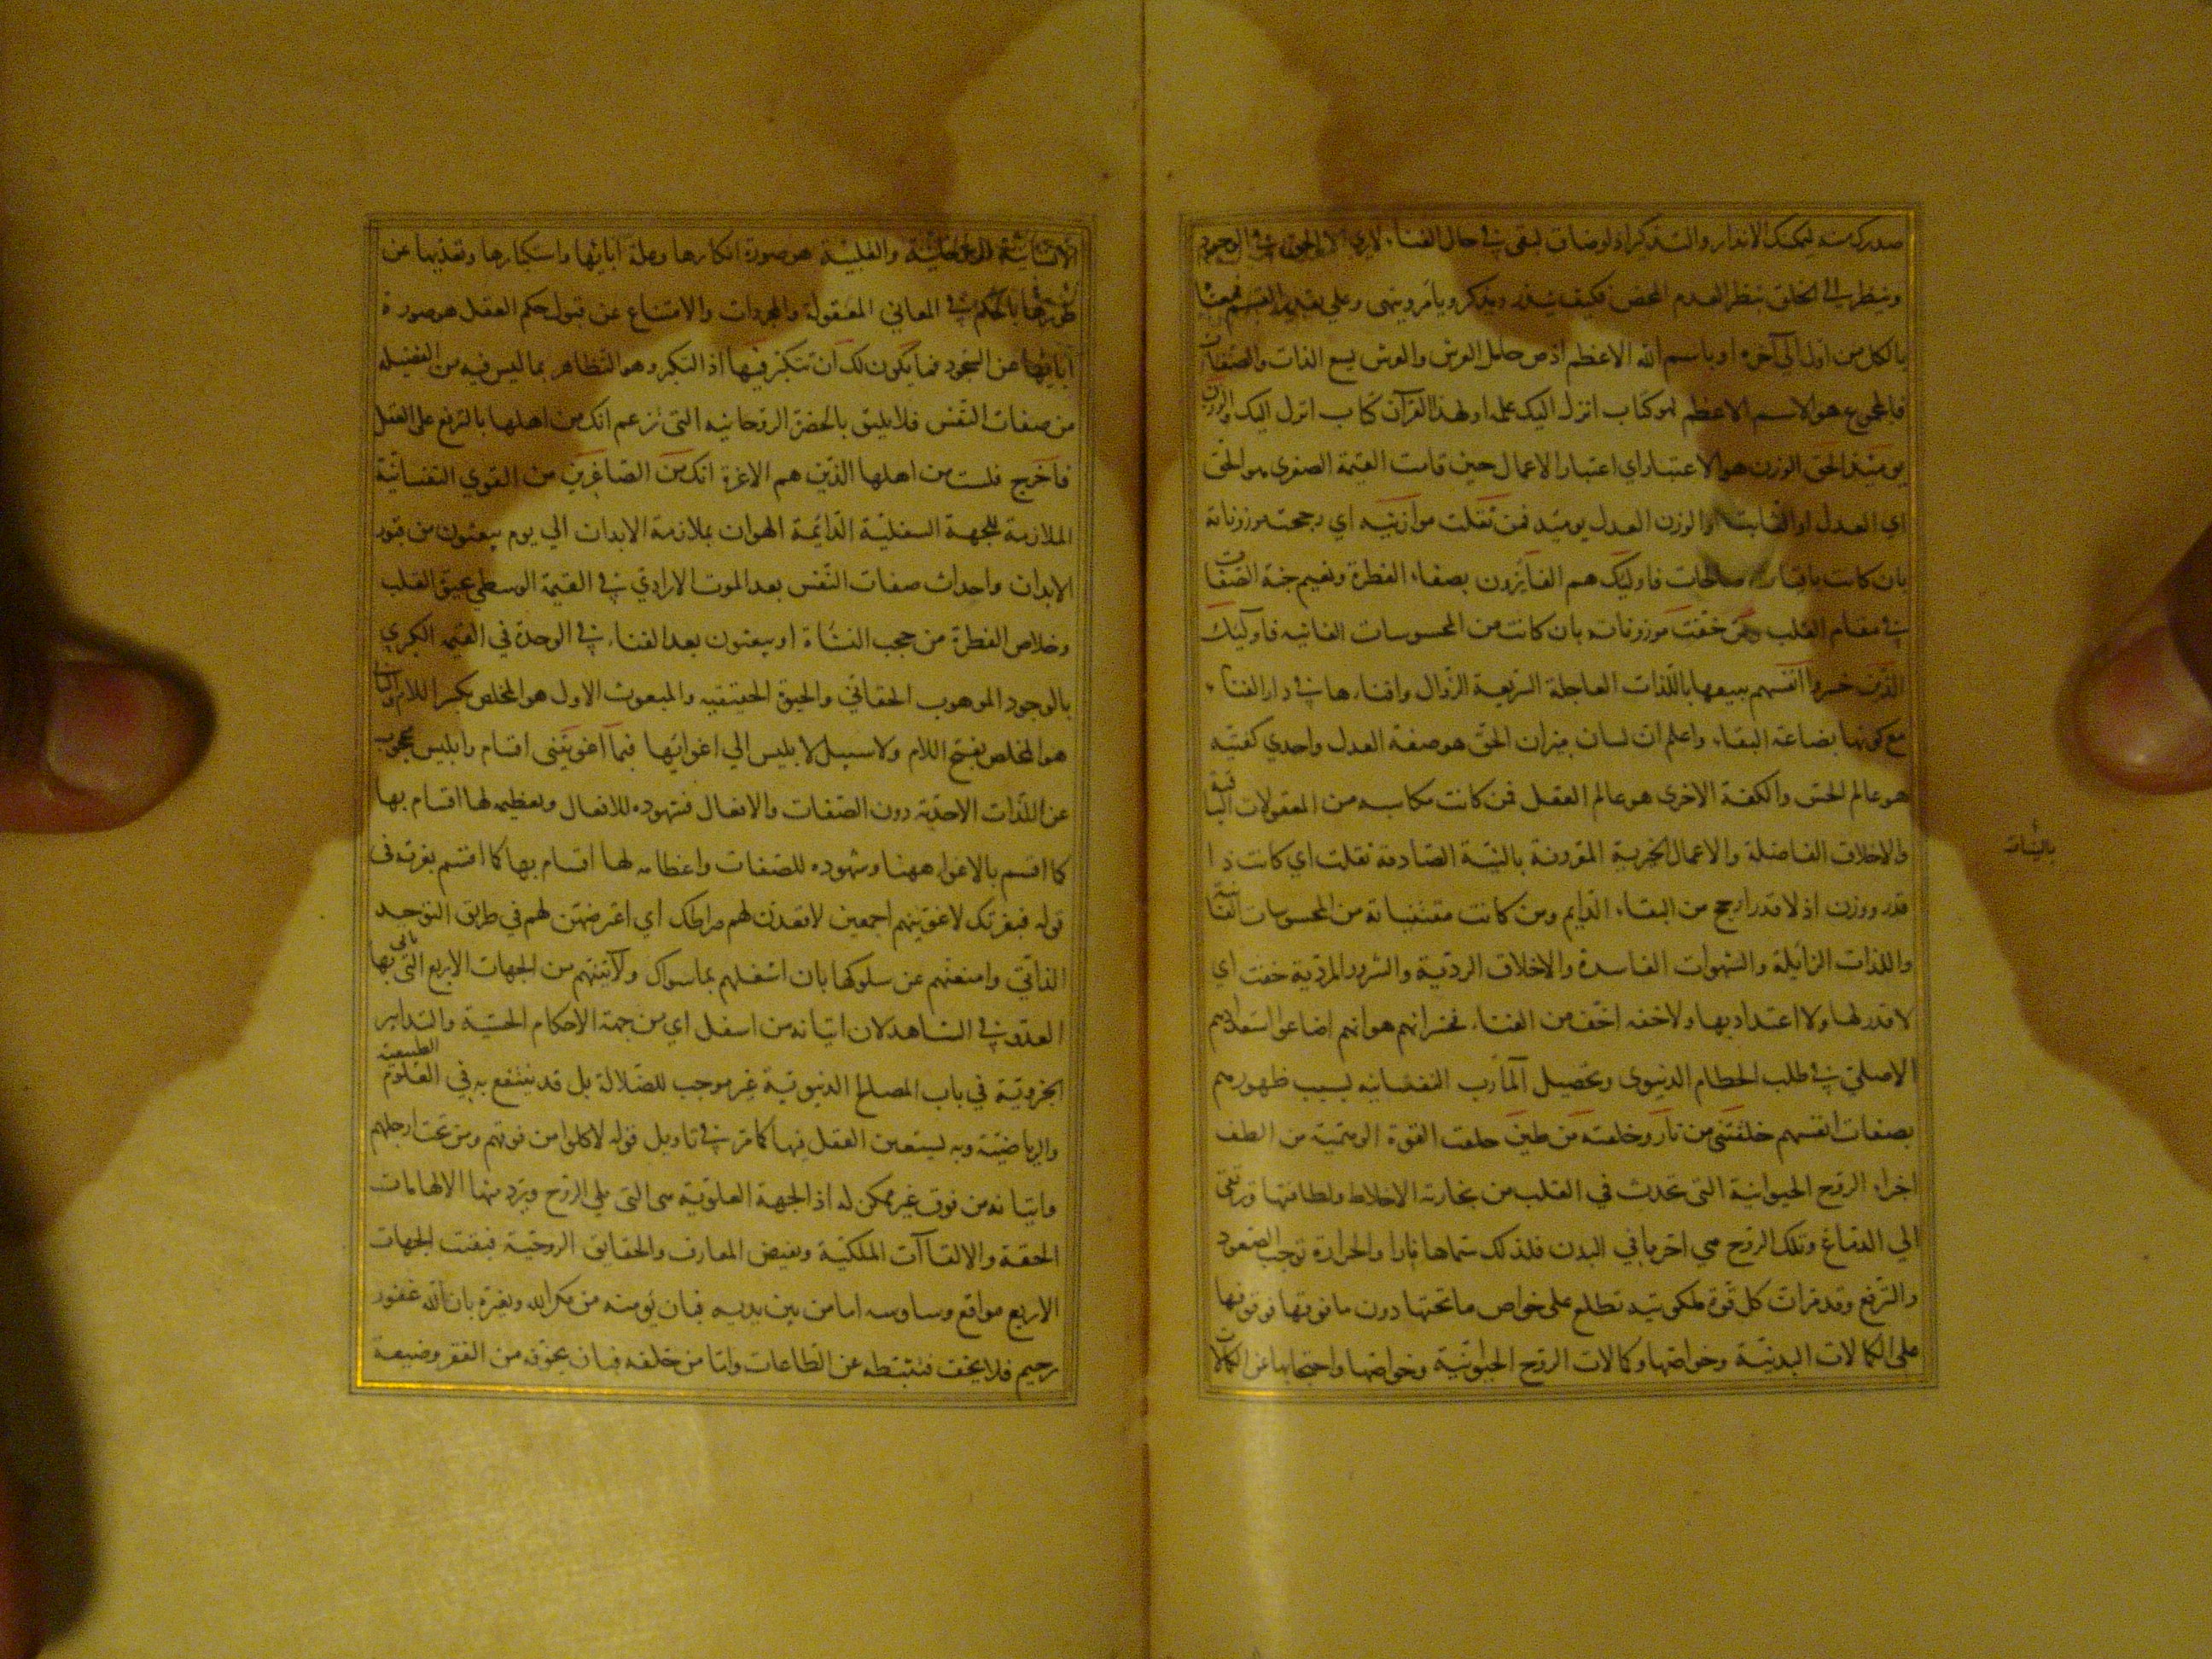 صدرك منه ليمكنك الانذار والتذكير اذ لو ضاق لبقى في حال الفناء لا يرى الا الحق في الوجود
وينظر الى الخلق بنظر العدم المحض فكيف ينذر ويذكر ويأمر وينهى وعلى تقدير القسم فمعناه
بالكل من اوله الى آخره او باسم الله الاعظم اذ ص حامل العرش والعرش يسع الذات والصفات
فالمجموع هو الاسم الاعظم لهو كتاب انزل اليك علمه او لهذا القرآن كتاب انزل اليك والوزن
يومئذ الحق الوزن هو الاعتبار اي اعتبار الاعمال حين قامت القيمة الصغرى هو الحق
اي العدل او الثابت او الوزن العدل يومئذ فمن ثقلت موازينه اي رجحت موزوناته
بان كانت باقيات صالحات فاوليك هم الفايزون بصفاء الفطرة ونعيم جنة الصفات
في مقام القلب ومن خفت موزوناته بان كانت من المحسوسات الفانيه فاوليك
الذين خسروا انفسهم ببيعها باللذات العاجلة السريعة الزوال وافناءها في دار الفناء
مع كونها بضاعة البقاء واعلم ان لسان ميزان الحق هو صفة العدل واحدي كفتيه
هو عالم الحس والكفة الاخرى هو عالم العقل فمن كانت مكاسبه من المعقولات الباقية
والاخلاق الفاضلة والاعمال الخيرية المقرونة بالنية الصادقة ثقلت اي كانت ذا
قدر ووزن اذ لا قدر ارجح من البقاء الدايم ومن كانت مقتنياته من المحسوسات الفانية
واللذات الزايلة والشهوات الفاسدة والاخلاق الردية والشرور المردية خفت اي
لا قدر لها ولا اعتداد بها ولا خفه اخف من الفناء فخسرانهم هو انهم اضاعوا استعدادهم
الاصلي في طلب الحطام الدنيوى وتحصيل المآرب النفسانيه لسبب ظهورهم
بصفات انفسهم خلقتنى من نار وخلقته من طين خلقت القوة الوهمية من الطف
اجزاء الروح الحيوانية التى تحدث في القلب من بخارية الاخلاط ولطافتها وترتقى
الي الدماغ وتلك الروح هي احر ما في البدن فلذلك سماها نارا والحرارة توجب الصعود
والترفع وقد مر ان كل قوة ملكوتيه تطلع على خواص ما تحتها دون ما فوقها فوقوفها
على الكمالات البدنية وخواصها وكمالات الروح الحيوانية وخواصها واحتجابها عن الكمالات
بالبينات
الانسانية الروحانية والقلبية هو صورة انكارها وعلة ابائها واستكبارها وتعديها عن
طورها بالحكم في المعاني المعقولة والمجردات والامتناع عن قبول حكم العقل هو صورة
ابائها عن السجود فما يكون لك ان تتكبر فيها اذ التكبر وهو التظاهر بما ليس فيه من الفضيله
من صفات النفس فلا يليق بالحضرة الروحانيه التى تزعم انك من اهلها بالترفع على العقل
فاخرج فلست من اهلها الذين هم الاعزة انك من الصاغرين من القوي النفسانية
الملازمة للجهة السفلية الدايمة الهوان بملازمة الابدان الي يوم يبعثون من قبور
الابدان واحداث صفات النفس بعد الموت الارادي في القيمة الوسطى بحيوة القلب
وخلاص الفطرة من حجب النشاة او يبعثون بعد الفناء في الوحدة في القيمه الكبرى
بالوجود الموهوب الحقاني والحيوة الحقيقيه والمبعوث الاول هو المخلص بكسر اللام والثاني
هو المخلص بفتح اللام ولا سبيل لابليس الي اغوائها فبما اغويتنى اقسام وابليس محجوب
عن الذات الاحدية دون الصفات والافعال فشهوده للافعال وتعظيمه لها اقسام بها
كما اقسم بالاغواء ههنا وشهوده للصفات واعظامه لها اقسام بها كما اقسم بعزته فى
قوله فبعزتك لاغوينهم اجمعين لاقعدن لهم صراطك اي اعترضهن لهم في طريق التوحيد
الذاتي وامنعنهم عن سلوكها بان اشغلهم بما سواك ولآتينهم من الجهات الاربع التى ياتى بها
العدو في الشاهد لان اتيانه من اسفل اي من جهة الاحكام الحسية والتدابير
الجزوية في باب المصالح الدنيوية غير موجب للضلالة بل قد ينتفع به في العلوم الطبيعية
والرياضية وبه يستعين العقل فيها كما مر في تاويل قوله لاكلوا من فوقهم ومن تحت ارجلهم
واتيانه من فوق غير ممكن له اذ الجهة العلوية هى التى تلي الروح ويرد منها الالهامات
الحقة والالقاآت الملكية وتفيض المعارف والحقايق الروحية فبقت الجهات
الاربع مواقع وساوسه اما من بين يديه فبان يؤمنه من مكر الله ويغره بان الله غفور
رحيم فلا يخف فيثبطه عن الطاعات واما من خلفه فبان يخوفه من الفقر وضيعة